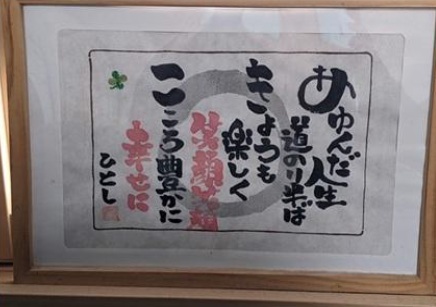 あゆんだ人生
道のり半ば
きょうも
楽しく
笑顔
こころ豊かに
幸せに
ひとし